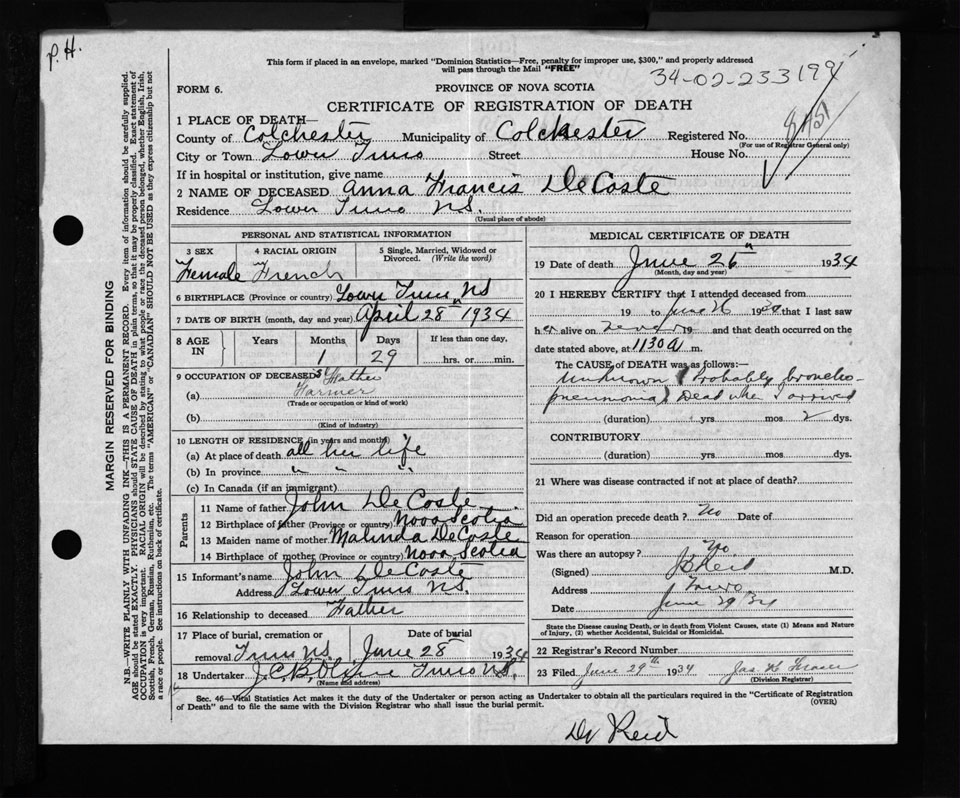 P. H.
This form if placed in an envelope, marked "Dominion Statistics—Free, penalty for improper use, $300," and properly addressed
will pass through the Mail "FREE"
34-02-233199
FORM 6.
PROVINCE OF NOVA SCOTIA
CERTIFICATE OF REGISTRATION OF DEATH
1 PLACE OF DEATH—
County of Colchester Municipality of Colchester Registered No.
(For use of Registrar General only)
City or Town Lower Truro Street House No.
If in hospital or institution, give name
2 NAME OF DECEASED Anna Francis DeCoste
Residence Lower Truro N.S.
(Usual place of abode)
PERSONAL AND STATISTICAL INFORMATION
3 SEX 4 RACIAL ORIGIN 5 Single, Married, Widowed or Divorced. (Write the word)
Female French
6 BIRTHPLACE (Province or country) Lower Truro NS
7 DATE OF BIRTH (month, day and year) April 28" 1934
8 AGE IN Years Months Days If less than one day,
1 29 hrs. or min.
9 OCCUPATION OF DECEASED'S Father
(a) Farmer
(Trade or occupation or kind of work)
(b)
(Kind of industry)
10 LENGTH OF RESIDENCE (in years and months)
(a) At place of death all her life
(b) In province " " "
(c) In Canada (if an immigrant)
Parents
11 Name of father John DeCoste
12 Birthplace of father (Province or country) Nova Scotia
13 Maiden name of mother Malinda DeCoste
14 Birthplace of mother (Province or country) Nova Scotia
15 Informant's name John DeCoste
Address Lower Truro N.S.
16 Relationship to deceased Father
17 Place of burial, cremation or Date of burial
removal Truro NS June 28 1934
18 Undertaker J.C.B. Truro N.S.
(Name and address)
MEDICAL CERTIFICATE OF DEATH
19 Date of death June 26" 1934
(Month, day and year)
20 I HEREBY CERTIFY that I attended deceased from
19 to June 26 19 that I last saw
her alive on never 19 and that death occurred on the
date stated above, at 1130 a m.
The CAUSE of DEATH was as follows:—
Unknown (Probably broncho-
pneumonia) Dead when I arrived
(duration) yrs mos 2 dys.
CONTRIBUTORY
(duration) yrs. mos. dys.
21 Where was disease contracted if not at place of death?
Did an operation precede death? No Date of
Reason for operation
Was there an autopsy? No.
(Signed) Reid M.D.
Address Truro
Date June 29 34
State the Disease causing Death, or in death from Violent Causes, state (1) Means and Nature
of Injury, (2) whether Accidental, Suicidal or Homicidal.
22 Registrar's Record Number
23 Filed June 29th 1934 Jas H Fraser
(Division Registrar)
Sec. 46—Vital Statistics Act makes it the duty of the Undertaker or person acting as Undertaker to obtain all the particulars required in the "Certificate of Registration
of Death" and to file the same with the Division Registrar who shall issue the burial permit. (OVER)
Dr Reid
MARGIN RESERVED FOR BINDING
N.B.—WRITE PLAINLY WITH UNFADING INK—THIS IS A PERMANENT RECORD. Every item of information should be carefully supplied.
AGE should be stated EXACTLY. PHYSICIANS should STATE CAUSE OF DEATH in plain terms, so that it may be properly classified. Exact statement of
OCCUPATION is very important. RACIAL ORIGIN will be described by stating to what people or race the deceased person belonged, whether English, Irish,
Scottish, French, German, Russian, Ruthenian, etc. The terms "AMERICAN" or "CANADIAN" SHOULD NOT BE USED as they express citizenship but not
a race or people. See instructions on back of certificate.